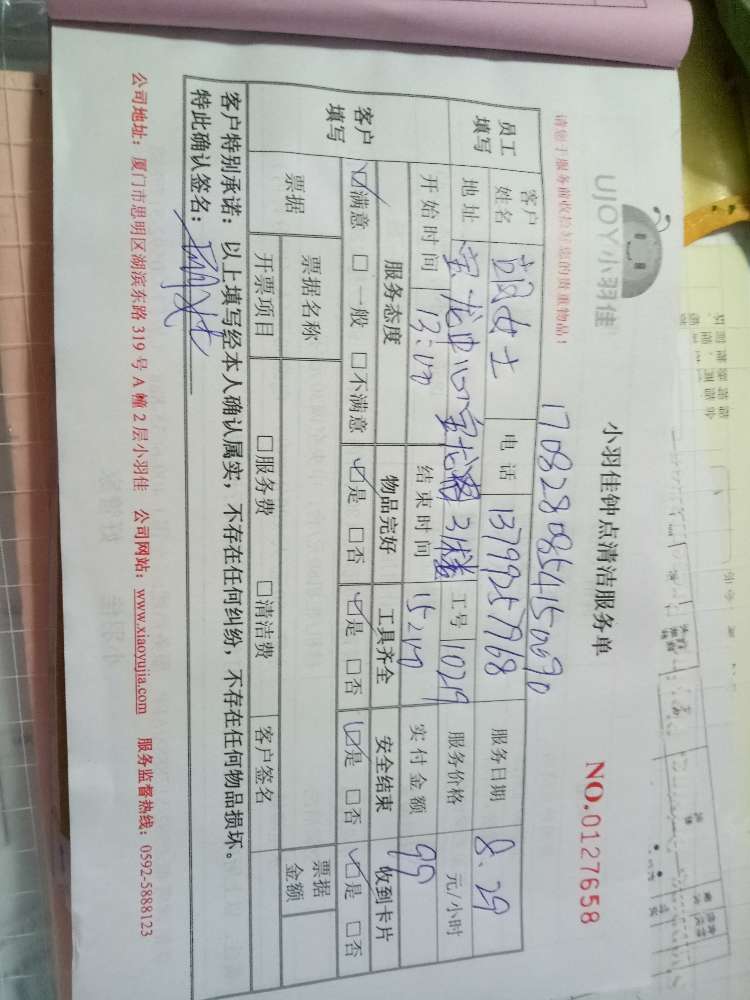 UJOY小羽佳
小羽佳钟点清洁服务单
NO.0127658
请您于服务前收拾好您的贵重物品！
1708280854150690
员工填写 客户姓名 女士 电话 13799257968 服务日期 8.29
地址 宝龙中心宝龙 31楼 工号 10219 服务价格 元/小时
开始时间 13:00 结束时间 15:00 实付金额 99
客户填写 服务态度 物品完好 工具齐全 安全结束 收到卡片
☑满意 □一般 □不满意 ☑是 □否 ☑是 □否 ☑是 □否 ☑是 □否
票据 票据名称 票据金额
开票项目 □服务费 □清洁费 客户签名
客户特别承诺：以上填写经本人确认属实，不存在任何纠纷，不存在任何物品损坏。
特此确认签名：
公司地址：厦门市思明区湖滨东路 319 号 A 幢 2 层小羽佳 公司网站：www.xiaoyujia.com 服务监督热线：0592-5888123